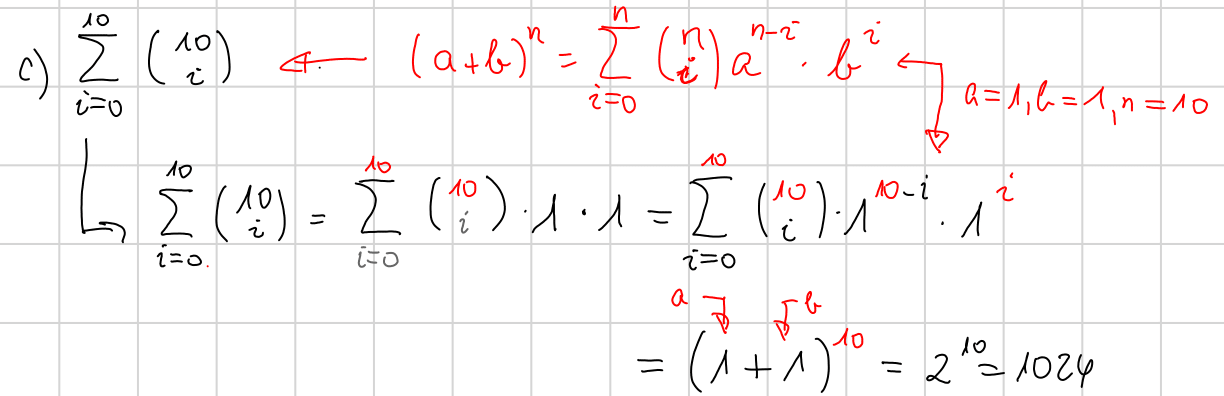 c) \sum_{i=0}^{10} \binom{10}{i} ← (a+b)^n = \sum_{i=0}^{n} \binom{n}{i} a^{n-i} · b^i
a=1, b=1, n=10
\sum_{i=0}^{10} \binom{10}{i} = \sum_{i=0}^{10} \binom{10}{i} · 1 · 1 = \sum_{i=0}^{10} \binom{10}{i} · 1^{10-i} · 1^i
a b
= (1+1)^{10} = 2^{10} = 1024